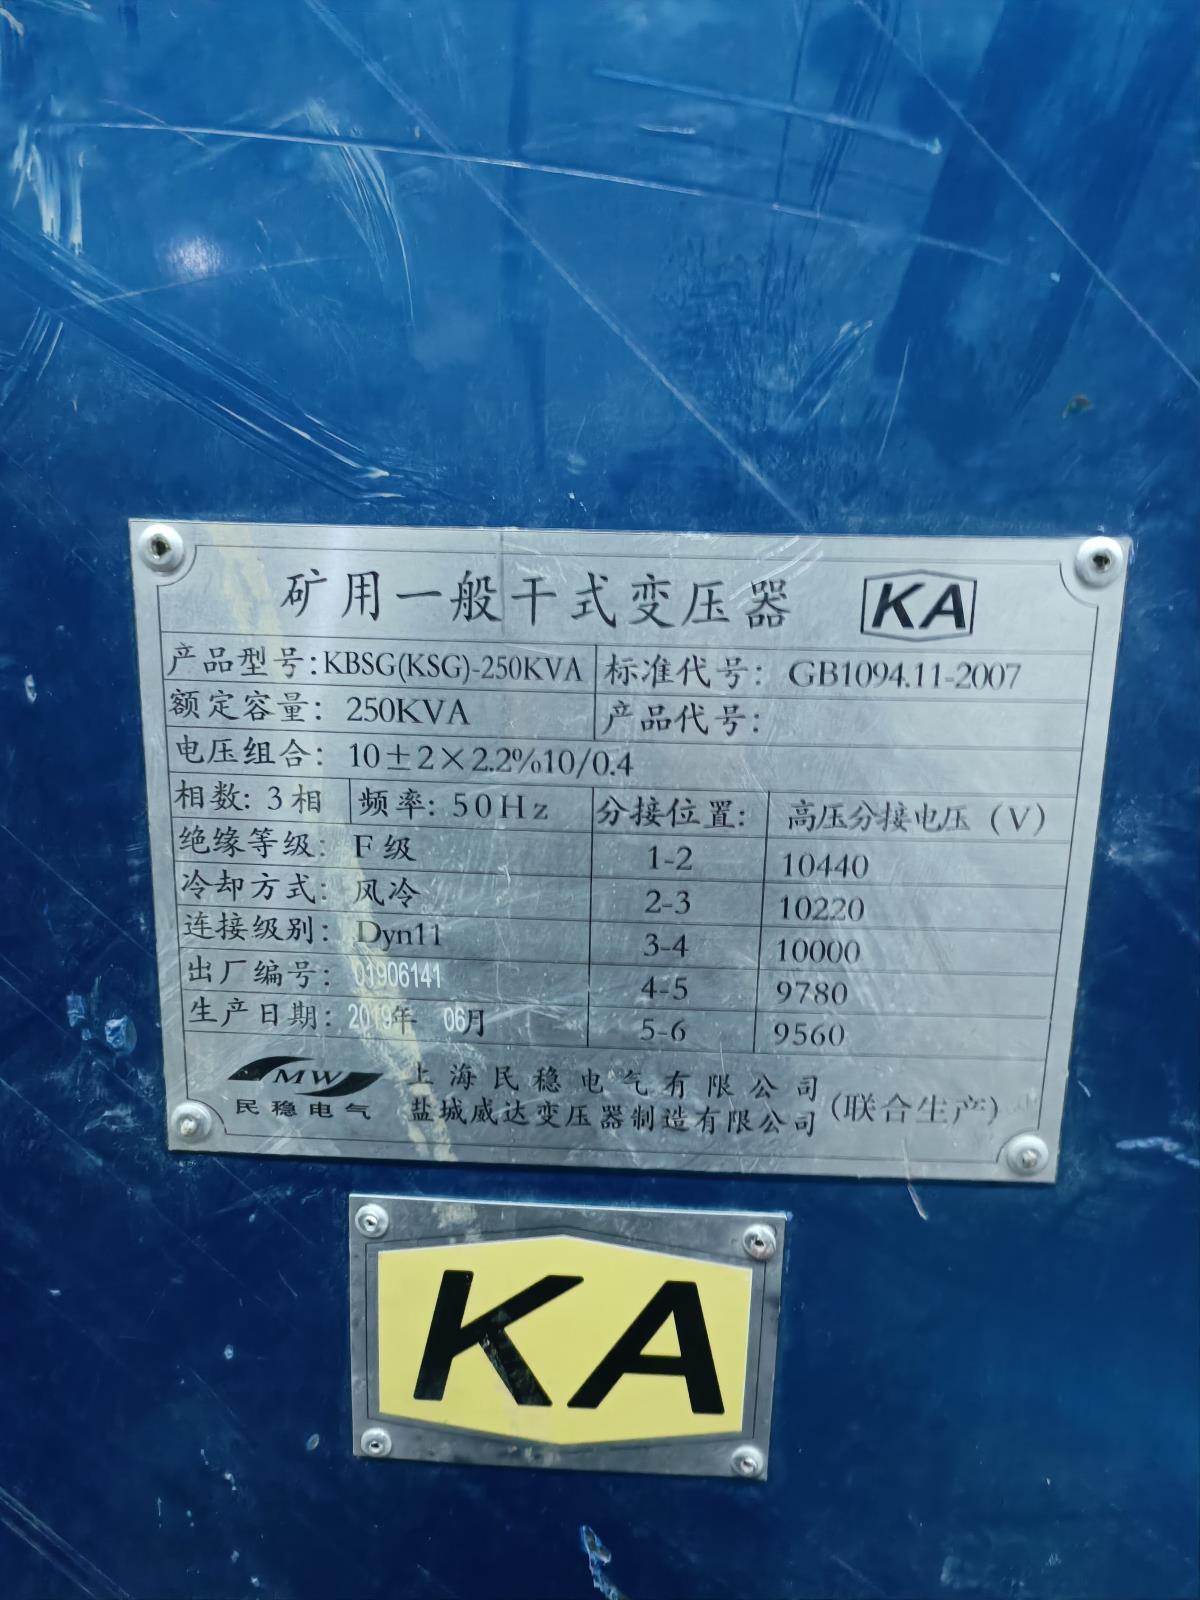 矿用一般干式变压器 KA
产品型号:KBSG(KSG)-250KVA 标准代号: GB1094.11-2007
额定容量: 250KVA 产品代号:
电压组合: 10±2×2.2%10/0.4
相数: 3相 频率: 50Hz 分接位置: 高压分接电压(V)
绝缘等级: F级 1-2 10440
冷却方式: 风冷 2-3 10220
连接级别: Dyn11 3-4 10000
出厂编号: 01906141 4-5 9780
生产日期: 2019年 06月 5-6 9560
MW 上海民稳电气有限公司
民稳电气 盐城威达变压器制造有限公司 (联合生产)
KA